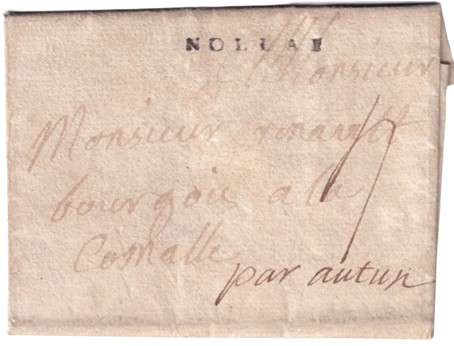 NOLLAI
A Monsieur
Monsieur
bourgois a la
Comalle
par autun